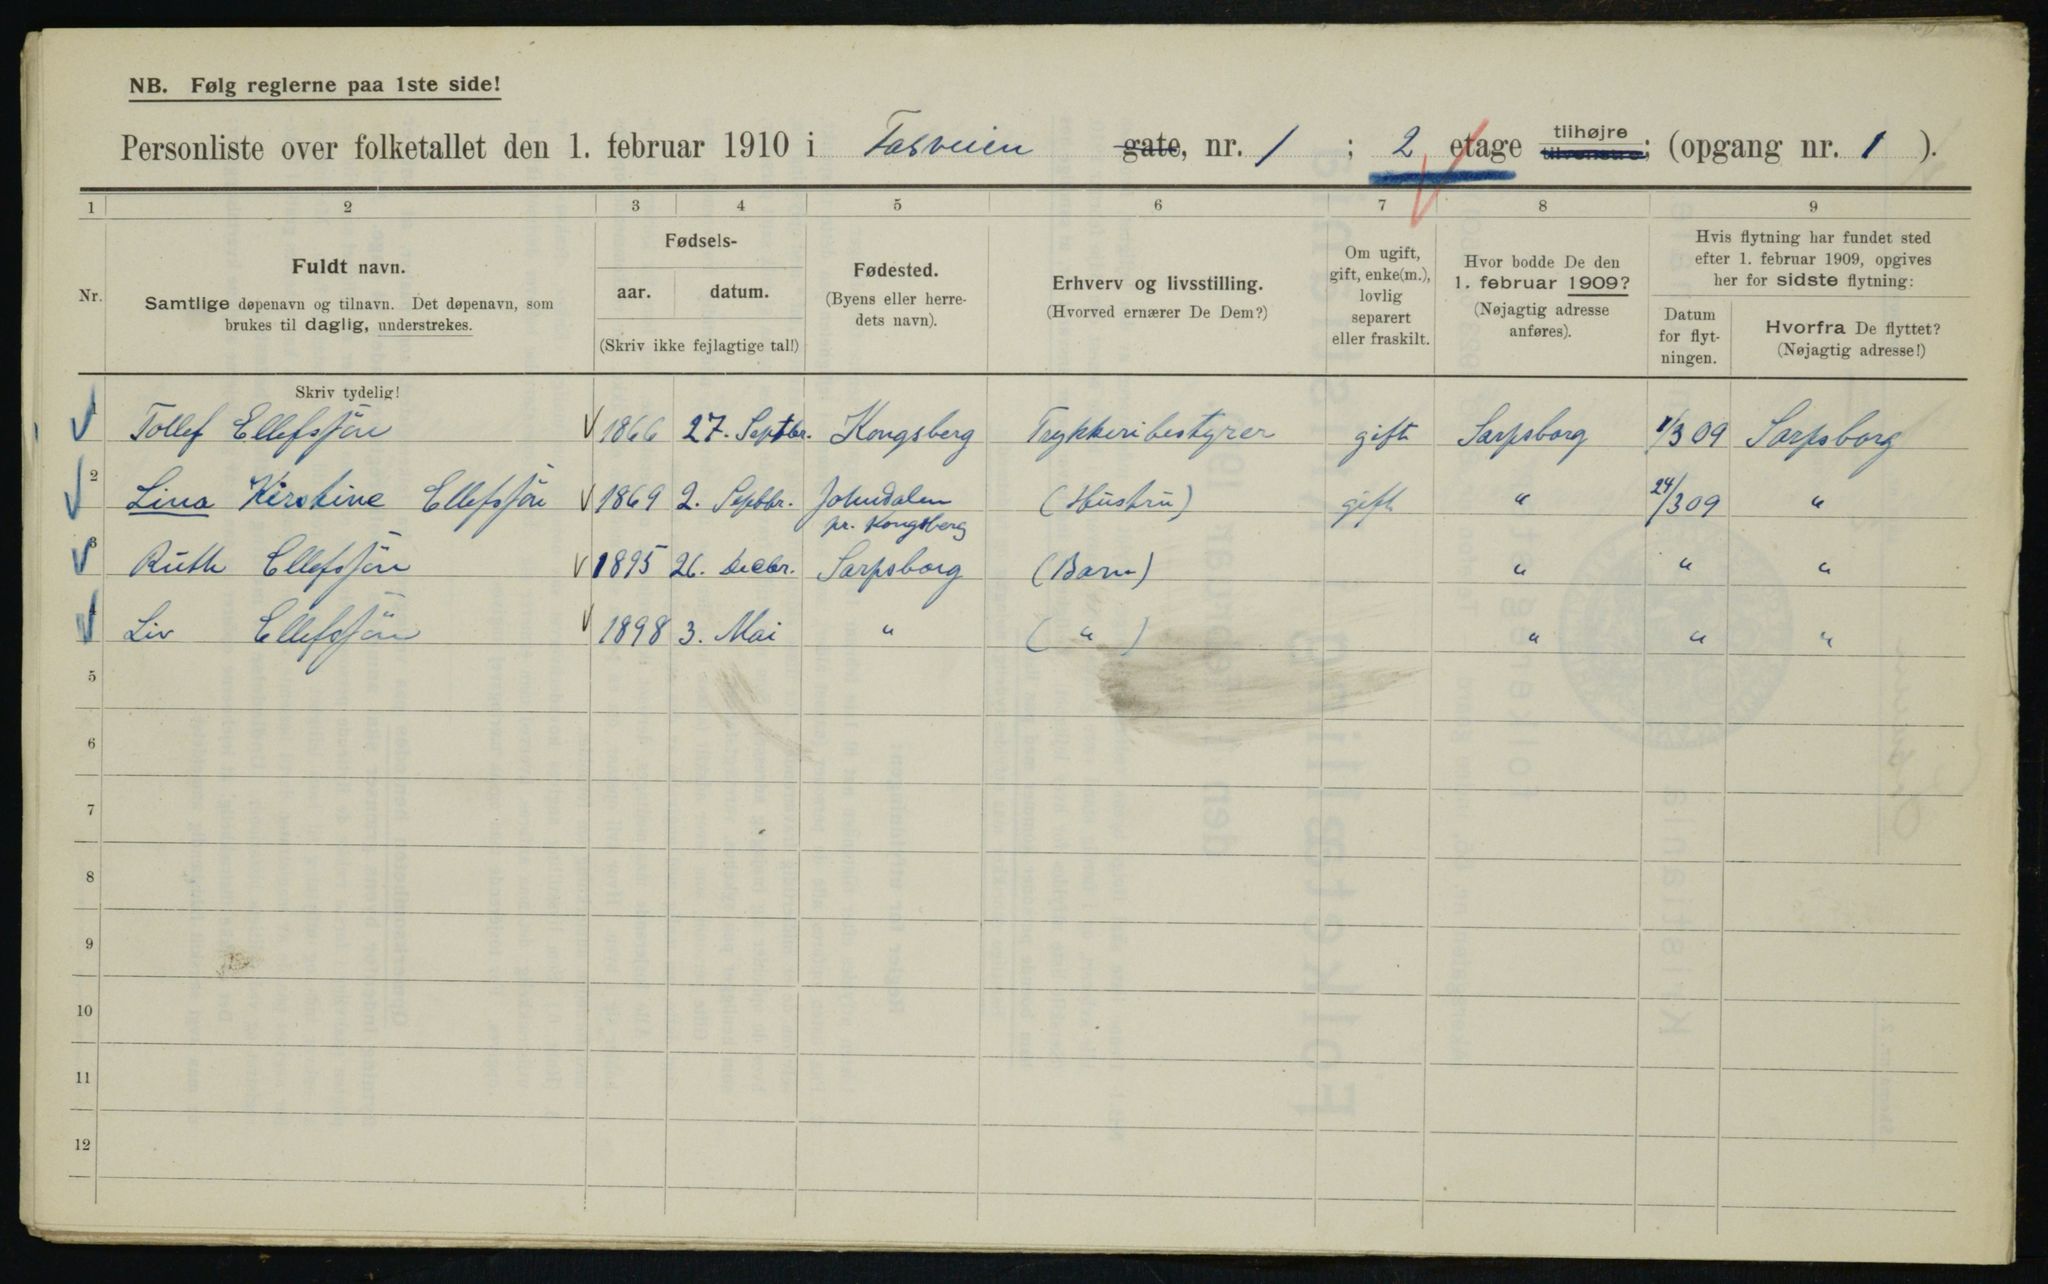 NB. Følg reglerne paa 1ste side!
Personliste over folketallet den 1. februar 1910 i Tåsveien gate, nr. 1 ; 2 etage tilhøjre tilvenstre; (opgang nr. 1 ).
1 2 3 4 5 6 7 8 9
Nr.
Fuldt navn.
Samtlige døpenavn og tilnavn. Det døpenavn, som
brukes til daglig, understrekes.
Fødsels-
aar. datum.
(Skriv ikke fejlagtige tal!)
Fødested.
(Byens eller herre-
dets navn).
Erhverv og livsstilling.
(Hvorved ernærer De Dem?)
Om ugift,
gift, enke(m.),
lovlig
separert
eller fraskilt.
Hvor bodde De den
1. februar 1909?
(Nøjagtig adresse
anføres).
Hvis flytning har fundet sted
efter 1. februar 1909, opgives
her for sidste flytning:
Datum
for flyt-
ningen.
Hvorfra De flyttet?
(Nøjagtig adresse!)
Skriv tydelig!
1 Tollef Ellefsjön 1866 27. Septbr. Kongsberg Trykkeribestyrer gift Sarpsborg 1/3 09 Sarpsborg
2 Lina Kirstine Ellefsjön 1869 2. Septbr. Johndalen (Hustru) gift " 24/3 09 "
pr. Kongsberg
3 Ruth Ellefsjön 1895 26. Decbr. Sarpsborg (Barn) " " "
4 Liv Ellefsjön 1898 3. Mai " ( " ) " " "
5
6
7
8
9
10
11
12